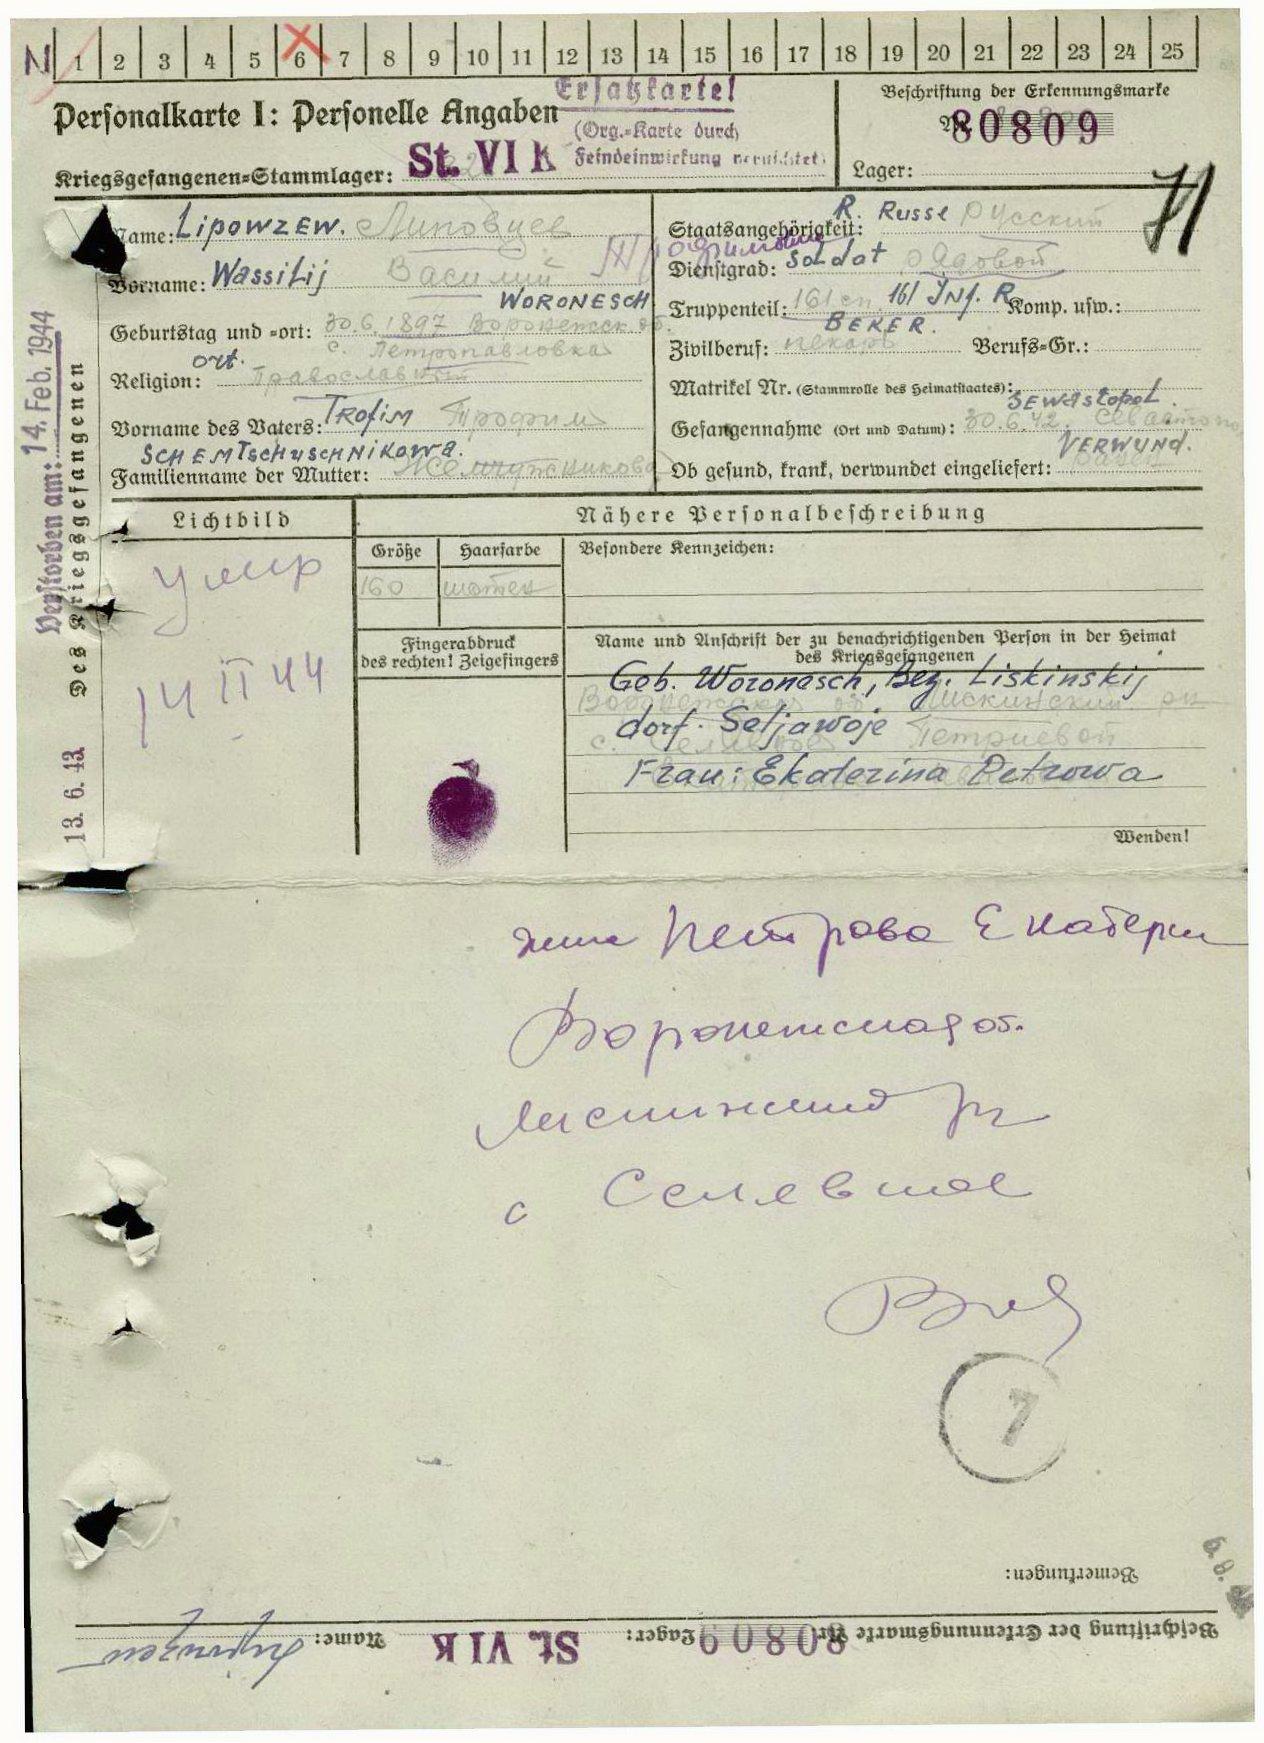 N 1 2 3 4 5 6 7 8 9 10 11 12 13 14 15 16 17 18 19 20 21 22 23 24 25
Personalkarte I: Personelle Angaben
Ersatzkarte!
(Org.-Karte durch
Feindeinwirkung vernichtet)
Kriegsgefangenen-Stammlager: St. VI K
Beschriftung der Erkennungsmarke
Nr. 80809
Lager:
Name: Lipowzew. Липовцев
Vorname: Wassilij Василий
WORONESCH
Geburtstag und -ort: 30.6.1897 Воронежск об.
с. Петропавловка
ort.
Religion: Православный
Vorname des Vaters: Trofim Трофим
SCHEMTSCHUSCHNIKOWA.
Familienname der Mutter: Жемчужникова
R. Russe русский
Staatsangehörigkeit:
Трофимович
Dienstgrad: Soldat рядовой
Truppenteil: 161 сп. 161 Inf. R. Komp. usw.:
BEKER.
Zivilberuf: пекарь Berufs-Gr.:
Matrikel Nr. (Stammrolle des Heimatstaates):
SEWASTOPOL.
Gefangennahme (Ort und Datum): 30.6.42. Севастополь
VERWUND.
Ob gesund, krank, verwundet eingeliefert: ранен
Verstorben am: 14. Feb. 1944
Des Kriegsgefangenen
13. 6. 43
Lichtbild
умер
14 II 44
Nähere Personalbeschreibung
Größe Haarfarbe Besondere Kennzeichen:
160 шатен
Fingerabdruck
des rechten! Zeigefingers
Name und Anschrift der zu benachrichtigenden Person in der Heimat
des Kriegsgefangenen
Geb. Woronesch, Bez. Liskinskij
Воронежская об. Лискинский рн
dorf. Seljawoje
с. Селявное Петриевой
Frau: Ekaterina Petrowa
Wenden!
жена Петрова Екатерин
Воронежская об.
Лискинский рн
с Селявное
7
Bemerkungen:
Beschriftung der Erkennungsmarke Nr. 80809 Lager: St. VI K Name: Lipowzew